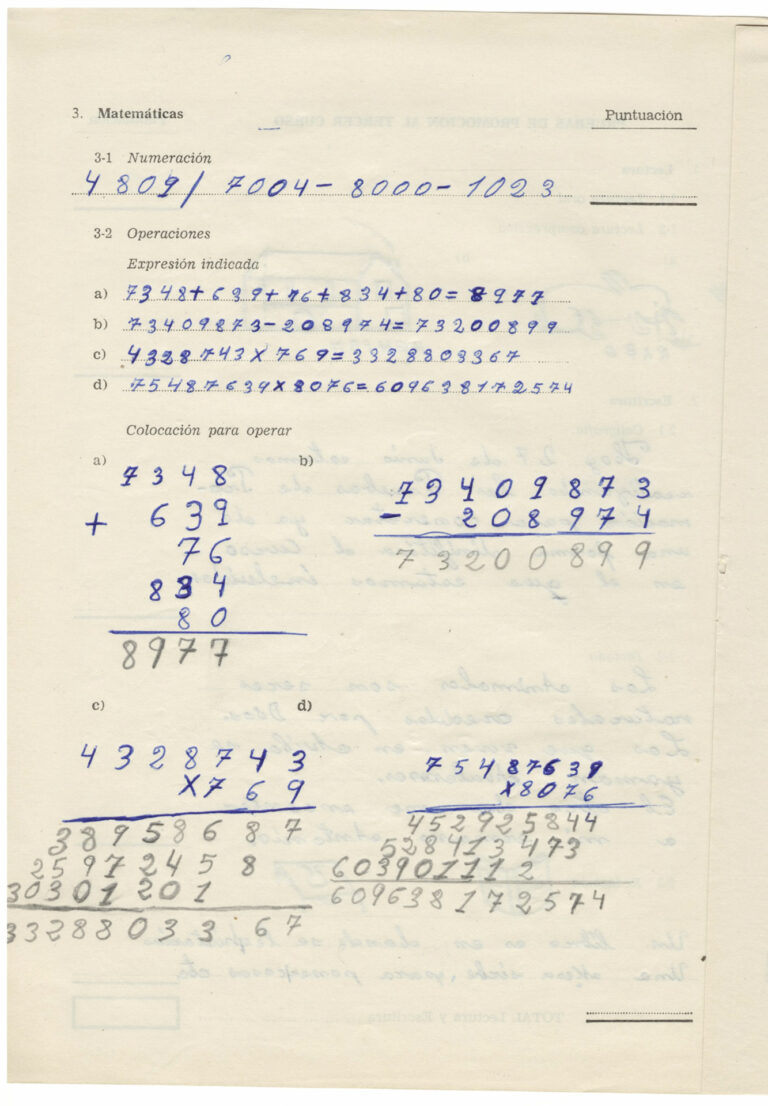 3. Matemáticas
Puntuación
3-1 Numeración
4809/ 7004- 8000- 1023
3-2 Operaciones
Expresión indicada
a) 7348+639+76+834+80=8977
b) 73409873-208974=73200899
c) 4328743X769=3328803367
d) 75487639X8076=609638172574
Colocación para operar
a)
b)
7348
+ 639
76
834
80
8977
73409873
- 208974
73200899
c)
d)
4328743
X769
38958687
25972458
30301201
3328803367
75487639
X8076
452925844
528413473
603901112
609638172574